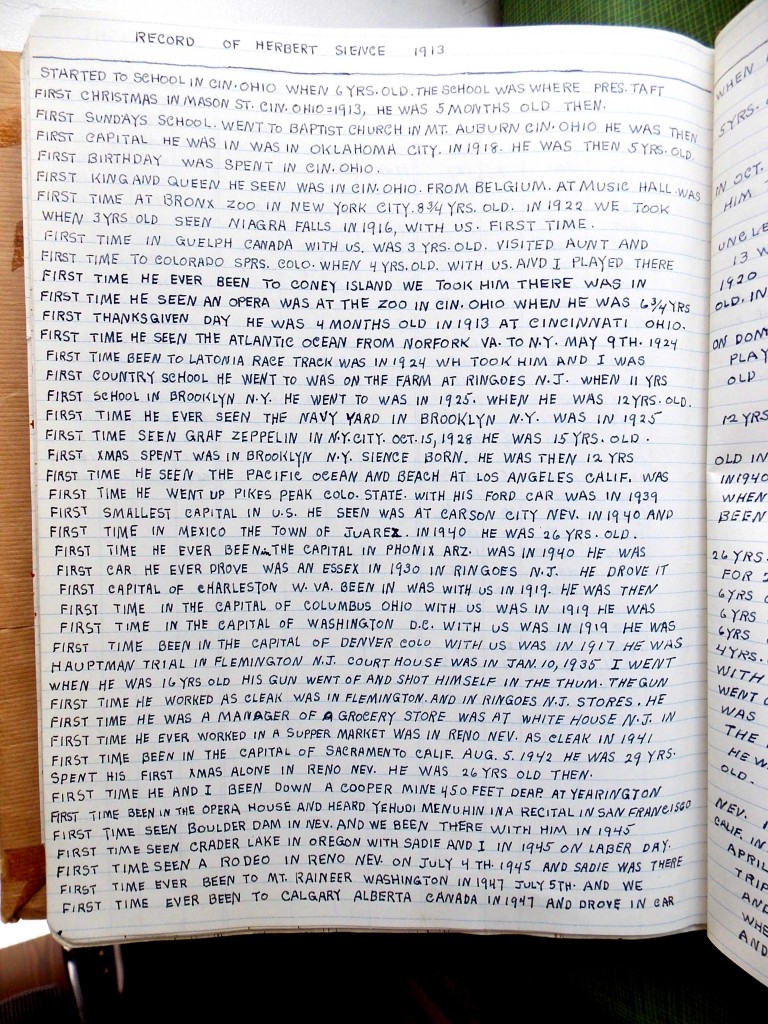 RECORD OF HERBERT SIENCE 1913
STARTED TO SCHOOL IN CIN. OHIO WHEN 6 YRS. OLD. THE SCHOOL WAS WHERE PRES. TAFT
FIRST CHRISTMAS IN MASON ST. CIN. OHIO=1913, HE WAS 5 MONTHS OLD THEN.
FIRST SUNDAYS SCHOOL. WENT TO BAPTIST CHURCH IN MT. AUBURN CIN. OHIO HE WAS THEN
FIRST CAPITAL HE WAS IN WAS IN OKLAHOMA CITY. IN 1918. HE WAS THEN 5 YRS. OLD.
FIRST BIRTHDAY WAS SPENT IN CIN. OHIO.
FIRST KING AND QUEEN HE SEEN WAS IN CIN. OHIO. FROM BELGIUM. AT MUSIC HALL. WAS
FIRST TIME AT BRONX ZOO IN NEW YORK CITY. 8 3/4 YRS. OLD. IN 1922 WE TOOK
WHEN 3 YRS OLD SEEN NIAGRA FALLS IN 1916, WITH US. FIRST TIME.
FIRST TIME IN GUELPH CANADA WITH US. WAS 3 YRS. OLD. VISITED AUNT AND
FIRST TIME TO COLORADO SPRS. COLO. WHEN 4 YRS. OLD. WITH US. AND I PLAYED THERE
FIRST TIME HE EVER BEEN TO CONEY ISLAND WE TOOK HIM THERE WAS IN
FIRST TIME HE SEEN AN OPERA WAS AT THE ZOO IN CIN. OHIO WHEN HE WAS 6 3/4 YRS
FIRST THANKSGIVEN DAY HE WAS 4 MONTHS OLD IN 1913 AT CINCINNATI OHIO.
FIRST TIME HE SEEN THE ATLANTIC OCEAN FROM NORFORK VA. TO N.Y. MAY 9TH. 1924
FIRST TIME BEEN TO LATONIA RACE TRACK WAS IN 1924 WH TOOK HIM AND I WAS
FIRST COUNTRY SCHOOL HE WENT TO WAS ON THE FARM AT RINGOES N.J. WHEN 11 YRS
FIRST SCHOOL IN BROOKLYN N.Y. HE WENT TO WAS IN 1925. WHEN HE WAS 12 YRS. OLD.
FIRST TIME HE EVER SEEN THE NAVY YARD IN BROOKLYN N.Y. WAS IN 1925
FIRST TIME SEEN GRAF ZEPPELIN IN N.Y. CITY. OCT. 15, 1928 HE WAS 15 YRS. OLD.
FIRST XMAS SPENT WAS IN BROOKLYN N.Y. SIENCE BORN. HE WAS THEN 12 YRS
FIRST TIME HE SEEN THE PACIFIC OCEAN AND BEACH AT LOS ANGELES CALIF. WAS
FIRST TIME HE WENT UP PIKES PEAK COLO. STATE. WITH HIS FORD CAR WAS IN 1939
FIRST SMALLEST CAPITAL IN U.S. HE SEEN WAS AT CARSON CITY NEV. IN 1940 AND
FIRST TIME IN MEXICO THE TOWN OF JUAREZ. IN 1940 HE WAS 26 YRS. OLD.
FIRST TIME HE EVER BEEN THE CAPITAL IN PHONIX ARZ. WAS IN 1940 HE WAS
FIRST CAR HE EVER DROVE WAS AN ESSEX IN 1930 IN RINGOES N.J. HE DROVE IT
FIRST CAPITAL OF CHARLESTON W. VA. BEEN IN WAS WITH US IN 1919. HE WAS THEN
FIRST TIME IN THE CAPITAL OF COLUMBUS OHIO WITH US WAS IN 1919 HE WAS
FIRST TIME IN THE CAPITAL OF WASHINGTON D.C. WITH US WAS IN 1919 HE WAS
FIRST TIME BEEN IN THE CAPITAL OF DENVER COLO WITH US WAS IN 1917 HE WAS
HAUPTMAN TRIAL IN FLEMINGTON N.J. COURT HOUSE WAS IN JAN. 10, 1935 I WENT
WHEN HE WAS 16 YRS OLD HIS GUN WENT OF AND SHOT HIMSELF IN THE THUM. THE GUN
FIRST TIME HE WORKED AS CLEAK WAS IN FLEMINGTON. AND IN RINGOES N.J. STORES. HE
FIRST TIME HE WAS A MANAGER OF A GROCERY STORE WAS AT WHITE HOUSE N.J. IN
FIRST TIME HE EVER WORKED IN A SUPPER MARKET WAS IN RENO NEV. AS CLEAK IN 1941
FIRST TIME BEEN IN THE CAPITAL OF SACRAMENTO CALIF. AUG. 5. 1942 HE WAS 29 YRS.
SPENT HIS FIRST XMAS ALONE IN RENO NEV. HE WAS 26 YRS OLD THEN.
FIRST TIME HE AND I BEEN DOWN A COOPER MINE 450 FEET DEAP. AT YEARINGTON
FIRST TIME BEEN IN THE OPERA HOUSE AND HEARD YEHUDI MENUHIN IN A RECITAL IN SAN FRANCISCO
FIRST TIME SEEN BOULDER DAM IN NEV. AND WE BEEN THERE WITH HIM IN 1945
FIRST TIME SEEN CRADER LAKE IN OREGON WITH SADIE AND I IN 1945 ON LABER DAY.
FIRST TIME SEEN A RODEO IN RENO NEV. ON JULY 4 TH. 1945 AND SADIE WAS THERE
FIRST TIME EVER BEEN TO MT. RAINEER WASHINGTON IN 1947 JULY 5TH. AND WE
FIRST TIME EVER BEEN TO CALGARY ALBERTA CANADA IN 1947 AND DROVE IN CAR
WHEN
5 YRS.
IN OCT.
HIM
UNCLE
13
1920
OLD. IN
ON DON
PLAY
OLD
12 YRS
OLD IN
IN 1940
WHEN
BEEN
26 YRS.
FOR
6 YRS
6 YRS
6 YRS
4 YRS.
WITH
WENT
WAS
THE
HE W
OLD.
NEV.
CALIF. IN
APRIL
TRIP
AND
WHE
AND